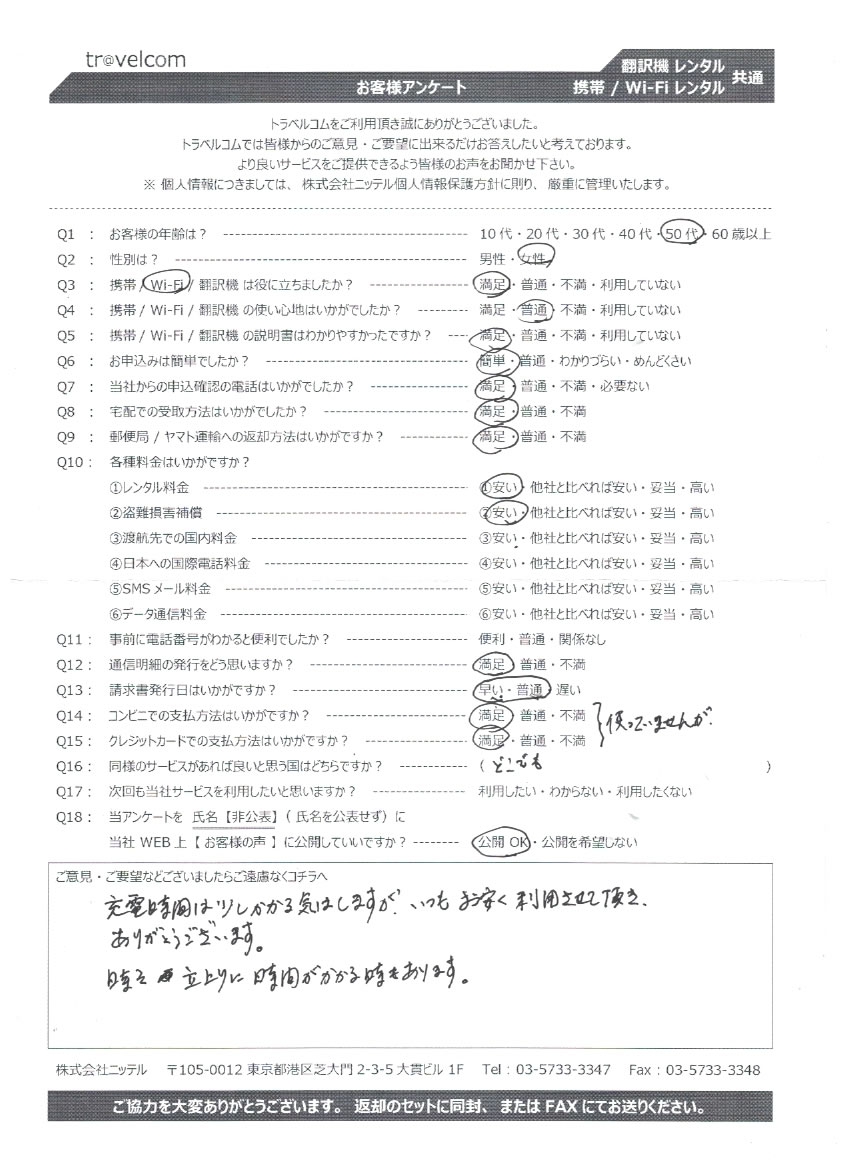 tr@velcom
翻訳機 レンタル
携帯 / Wi-Fi レンタル 共通
お客様アンケート
トラベルコムをご利用頂き誠にありがとうございました。
トラベルコムでは皆様からのご意見・ご要望に出来るだけお答えしたいと考えております。
より良いサービスをご提供できるよう皆様のお声をお聞かせ下さい。
※ 個人情報につきましては、株式会社ニッテル個人情報保護方針に則り、厳重に管理いたします。
Q1 : お客様の年齢は? 10代・20代・30代・40代・50代・60歳以上
Q2 : 性別は? 男性・女性
Q3 : 携帯 / Wi-Fi / 翻訳機 は役に立ちましたか? 満足・普通・不満・利用していない
Q4 : 携帯 / Wi-Fi / 翻訳機 の使い心地はいかがでしたか? 満足・普通・不満・利用していない
Q5 : 携帯 / Wi-Fi / 翻訳機 の説明書はわかりやすかったですか? 満足・普通・不満・利用していない
Q6 : お申込みは簡単でしたか? 簡単・普通・わかりづらい・めんどくさい
Q7 : 当社からの申込確認の電話はいかがでしたか? 満足・普通・不満・必要ない
Q8 : 宅配での受取方法はいかがでしたか? 満足・普通・不満
Q9 : 郵便局 / ヤマト運輸への返却方法はいかがですか? 満足・普通・不満
Q10 : 各種料金はいかがですか?
①レンタル料金 ①安い・他社と比べれば安い・妥当・高い
②盗難損害補償 ②安い・他社と比べれば安い・妥当・高い
③渡航先での国内料金 ③安い・他社と比べれば安い・妥当・高い
④日本への国際電話料金 ④安い・他社と比べれば安い・妥当・高い
⑤SMSメール料金 ⑤安い・他社と比べれば安い・妥当・高い
⑥データ通信料金 ⑥安い・他社と比べれば安い・妥当・高い
Q11 : 事前に電話番号がわかると便利でしたか? 便利・普通・関係なし
Q12 : 通信明細の発行をどう思いますか? 満足・普通・不満
Q13 : 請求書発行日はいかがですか? 早い・普通・遅い
Q14 : コンビニでの支払方法はいかがですか? 満足・普通・不満
使っていませんが
Q15 : クレジットカードでの支払方法はいかがですか? 満足・普通・不満
Q16 : 同様のサービスがあれば良いと思う国はどちらですか? ( どこでも )
Q17 : 次回も当社サービスを利用したいと思いますか? 利用したい・わからない・利用したくない
Q18 : 当アンケートを 氏名【非公表】( 氏名を公表せず) に
当社 WEB 上【 お客様の声 】に公開していいですか? 公開 OK・公開を希望しない
ご意見・ご要望などございましたらご遠慮なくコチラへ
充電時間は少しかかる気はしますが、いつも お安く 利用させて頂き、
ありがとうございます。
時々 立上りに 時間がかかる時もあります。
株式会社ニッテル 〒105-0012 東京都港区芝大門 2-3-5 大貫ビル 1F Tel : 03-5733-3347 Fax : 03-5733-3348
ご協力を大変ありがとうございます。返却のセットに同封、または FAX にてお送りください。